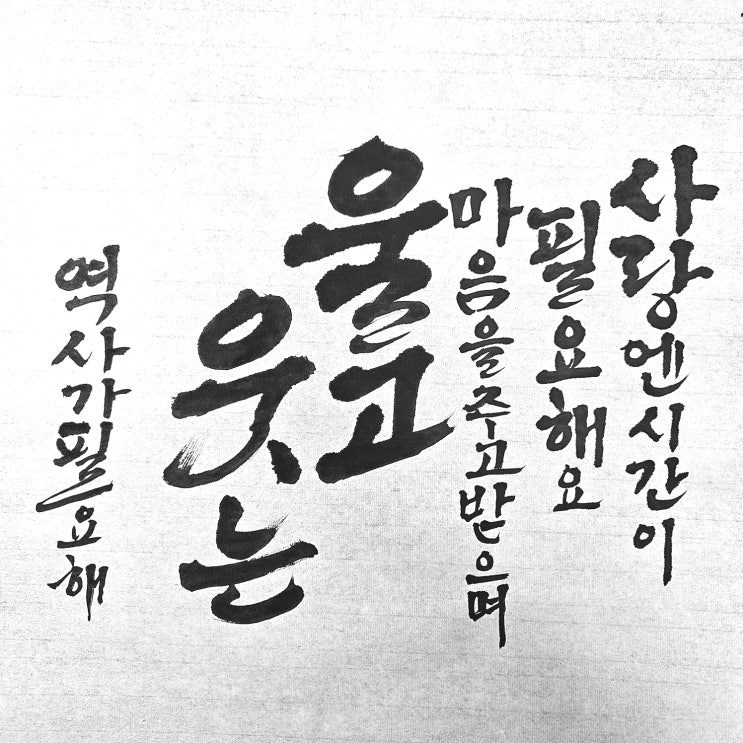 사랑엔시간이
필요해요
마음을주고받으며
울고
웃는
역사가필요해